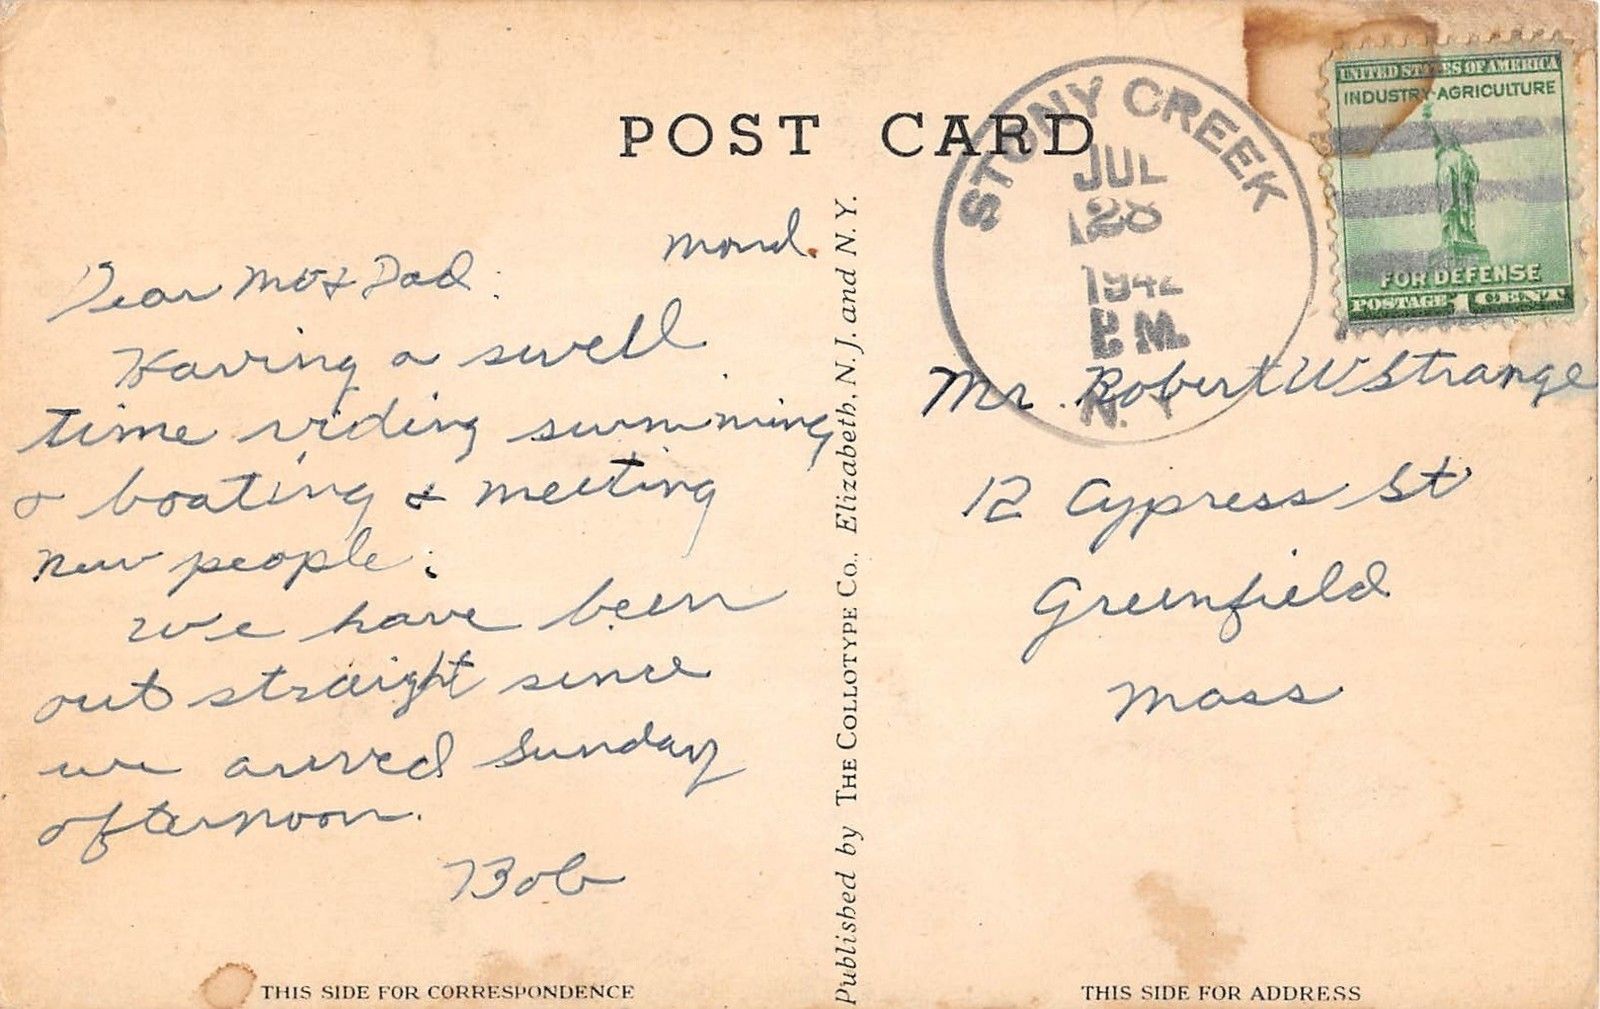 POST CARD
STONY CREEK
JUL
28
1942
P.M.
N.Y.
UNITED STATES OF AMERICA
INDUSTRY-AGRICULTURE
FOR DEFENSE
POSTAGE 1 CENT
Mond.
Dear Mo & Dad:
Having a swell
time riding swimming
& boating & meeting
new people.
we have been
out straight since
we arrived Sunday
afternoon.
Bob
Mr. Robert W Strange
12 Cypress St
Greenfield
Mass
Published by THE COLLOTYPE CO., Elizabeth, N. J. and N. Y.
THIS SIDE FOR CORRESPONDENCE
THIS SIDE FOR ADDRESS